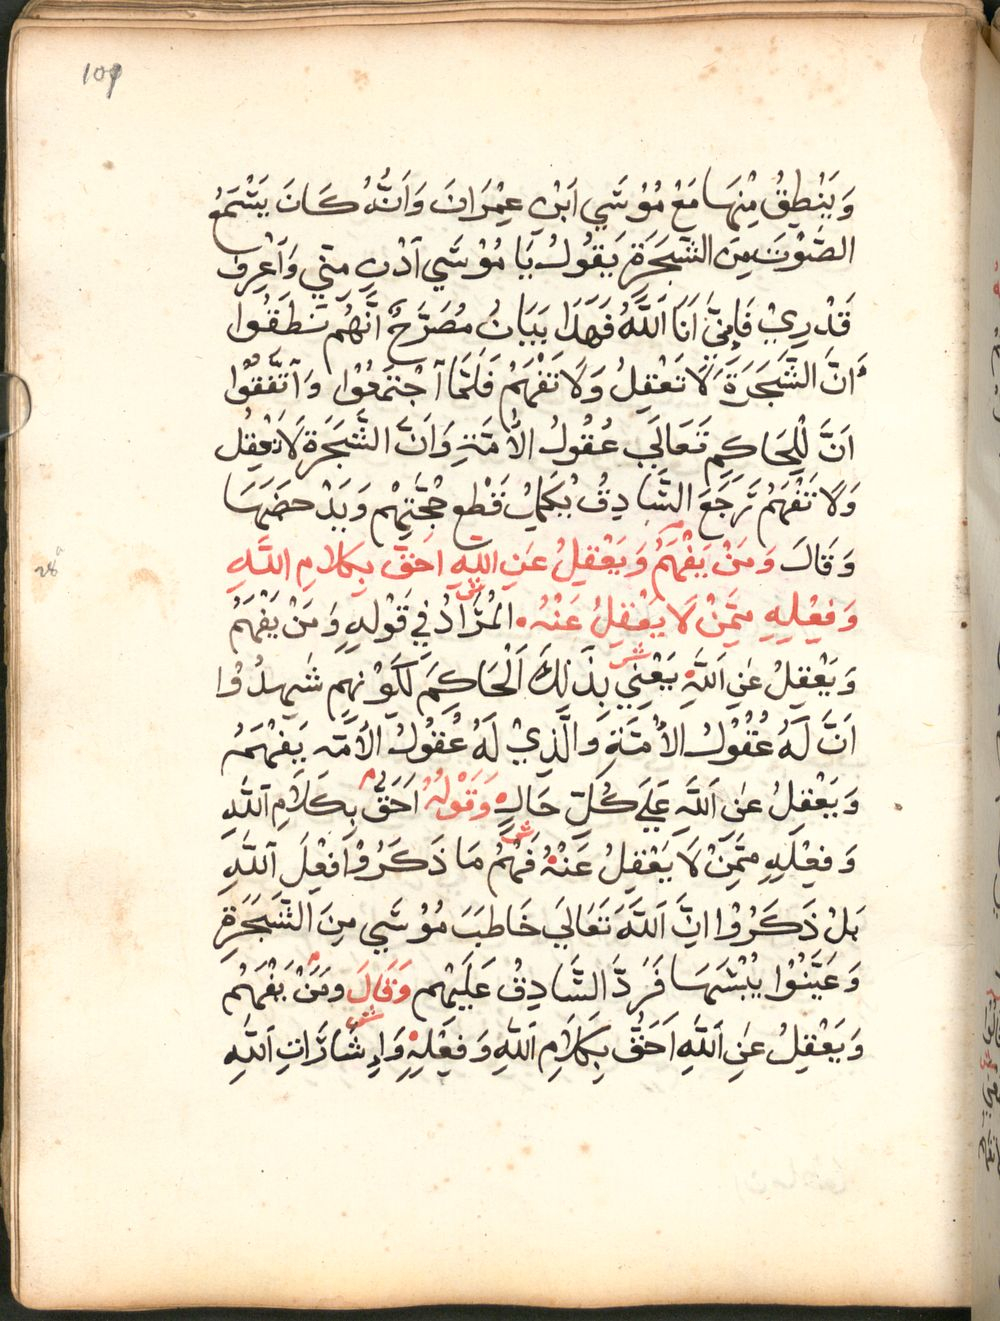 109
وَيَنْطِقُ مِنْهَا مَعْ مُوْسَي ابْنِ عِمْرَانَ وَاَنَّهُ كَانَ يَسْمَعُ
الصَّوْتَ مِنَ الشَّجَرَةِ يَقُولُ يَا مُوْسَي آدْنِ مِنّيِ وَآعْرِفْ
قَدْرِيْ فَإِنِّيَ اَنَا اَللَّهُ فَهَذَا بَيَانٌ مُصَرَّحٌ اَنَّهُم نَطَقُوا
اَنَّ الشَّجَرَةَ لَا تَعْقِلُ وَلَا تَفْهَمُ فَلَمَّا آجْتَمَعُوْا وَآتَّفَقُوْا
اَنَّ لِلْحَاكِمِ تَعَالَي عُقُولُ الأُمَّةِ وَاَنَّ الشَّجَرَةَ لَا تَعْقِل
وَلَا تَفْهَمُ رَجَعَ السَّادِقُ يُكَمِلُ قَطْع حُجَّتِهْم وَيَدْحَضَهَا
وَقَالَ وَمَنْ يَفْهَمُ وَيَعْقِلُ عَنِ اللّهِ احَقّ بِكَلَامِ اللَّهِ
28
وَفِعْلِهِ مِمَّنْ لَا يَعْقِلُ عَنْهُ. الْمُرَادُ فيِ قَوْلِهِ وَمَنْ يَفْهَمُ
وَيَعْقِلُ عَنِ اَللَّهِ يَعْنيِ بِذَلِكَ اَلْحَاكِمَ لِكَوْنِهِم شَهِدُوْا
اَنَّ لَهُ عُقُوْلُ الأُمَّةِ وَالَّذِيْ لَهُ عُقُولُ الأُمَّه يَفْهَمُ
وَيَعْقِلُ عَنِ اَللَّهِ عَلَي كُلِّ حَالٍ وَقَوْلُهُ اَحَقُّ بِكَلَامِ اَللَّهِ
وَفِعْلِهِ مِمَّنْ لَا يَعْقِلُ عَنْهُ فَهُمُ مَا ذَكَرُوْا فِعْلَ اَللَّهِ
بَلْ ذَكَرُوْا اِنَّ اَللَّهَ تَعَالَي خَاطَبَ مُوْسَي مِنَ الشَّجَرَةِ
وَعَيَّنُوْا يُبْسَهَا فَرَدَّ السَّادِقُ عَلَيْهِم وَقَالَ وَمَنْ يَفْهَمُ
وَيَعْقِلُ عَنِ اَللَّهِ اَحَقُّ بِكَلَامِ اَللَّهِ وَفِعْلِهِ وَاِشَارَاتِ اَللَّهِ